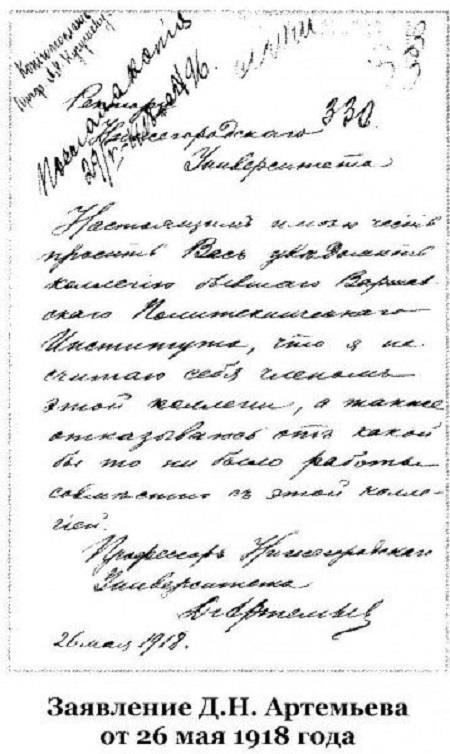 Послана копія
Ректору
330.
Нижегородскаго
Университета
Настоящимъ имѣю честь
просить Васъ увѣдомить
коллегію бывшаго Варшав-
скаго Политехническаго
Института, что я не
считаю себя членомъ
этой коллегіи, а также
отказываюсь отъ какой
бы то ни было работы
совмѣстно съ этой колле-
гіей.
Профессоръ Нижегородскаго
Университета
ДАртемьев
26 мая 1918.
Заявление Д.Н. Артемьева
от 26 мая 1918 года